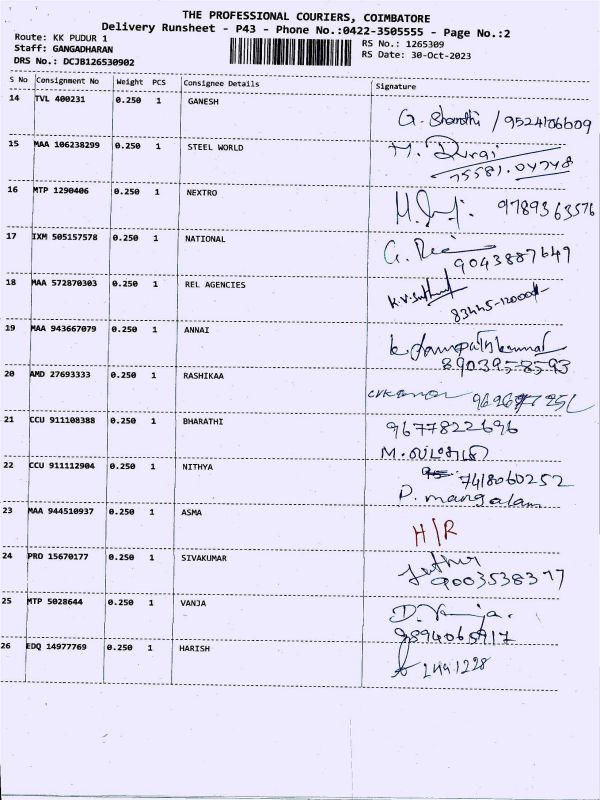 THE PROFESSIONAL COURIERS, COIMBATORE
Delivery Runsheet - P43 - Phone No.:0422-3505555 - Page No.:2
Route: KK PUDUR 1
RS No.: 1265309
Staff: GANGADHARAN
RS Date: 30-Oct-2023
DRS No.: DCJB126530902
S No Consignment No Weight PCS Consignee Details Signature
14 TVL 400231 0.250 1 GANESH
G. Shanthi / 9524106609
15 MAA 106238299 0.250 1 STEEL WORLD
M. Durai
75581.04748
16 MTP 1290406 0.250 1 NEXTRO
9789363576
17 IXM 505157578 0.250 1 NATIONAL
9043887649
18 MAA 572870303 0.250 1 REL AGENCIES
19 MAA 943667079 0.250 1 ANNAI
890395-8593
20 AMD 27693333 0.250 1 RASHIKAA
21 CCU 911108388 0.250 1 BHARATHI
9677822696
22 CCU 911112904 0.250 1 NITHYA
7418060252
P. mangalam
23 MAA 944510937 0.250 1 ASMA
H/R
24 PRO 15670177 0.250 1 SIVAKUMAR
9003538377
25 MTP 5028644 0.250 1 VANJA
D. Vanja.
9894065917
26 EDQ 14977769 0.250 1 HARISH